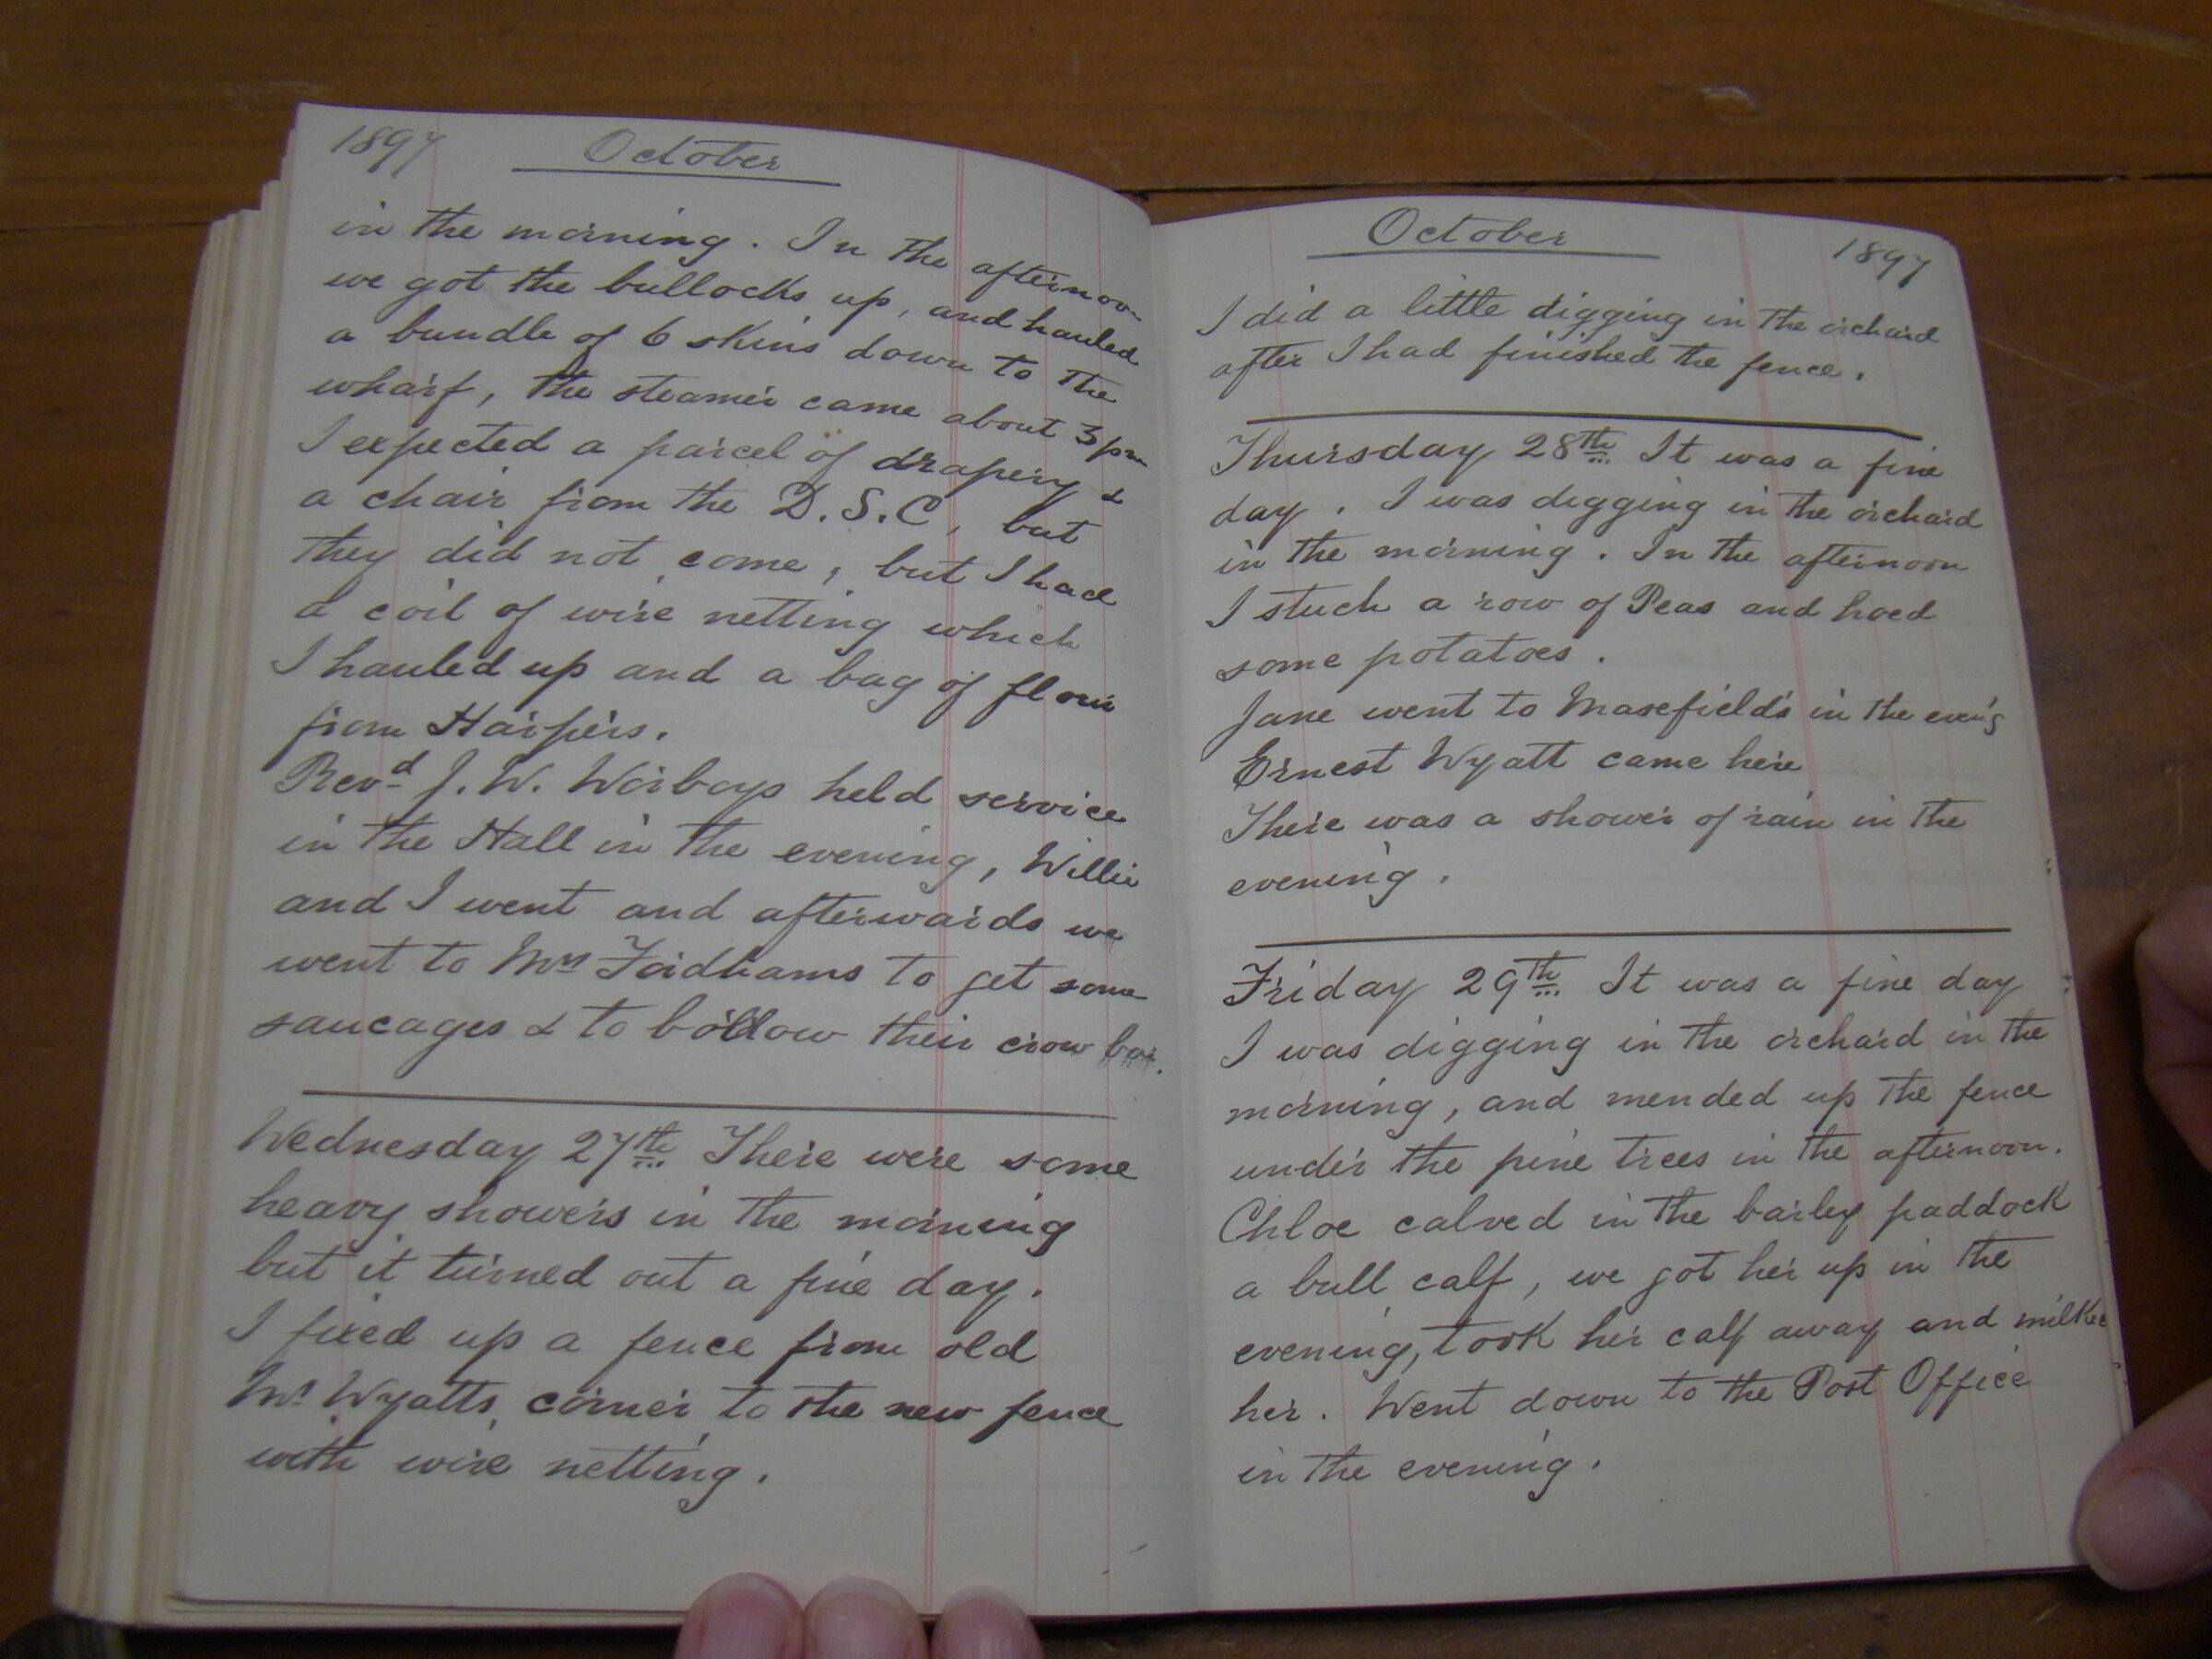 1897 October
in the morning. In the afternoon
we got the bullocks up, and hauled
a bundle of 6 skins down to the
wharf, the steamer came about 3 pm
I expected a parcel of drapery &
a chair from the D.S.C, but
they did not come, but I had
a coil of wire netting which
I hauled up and a bag of flour
from Harpers.
Revd J. W. Worboys held service
in the Hall in the evening, Willie
and I went and afterwards we
went to Mrs Fordhams to get some
saucages & to borrow their crow bar.
Wednesday 27th There were some
heavy showers in the morning
but it turned out a fine day.
I fixed up a fence from old
Mr Wyatts corner to the new fence
with wire netting.
October 1897
I did a little digging in the orchard
after I had finished the fence.
Thursday 28th It was a fine
day. I was digging in the orchard
in the morning. In the afternoon
I stuck a row of Peas and hoed
some potatoes.
Jane went to Masefield's in the even'g
Ernest Wyatt came here
There was a shower of rain in the
evening.
Friday 29th It was a fine day
I was digging in the orchard in the
morning, and mended up the fence
under the pine trees in the afternoon.
Chloe calved in the barley paddock
a bull calf, we got her up in the
evening, took her calf away and milked
her. Went down to the Post Office
in the evening.